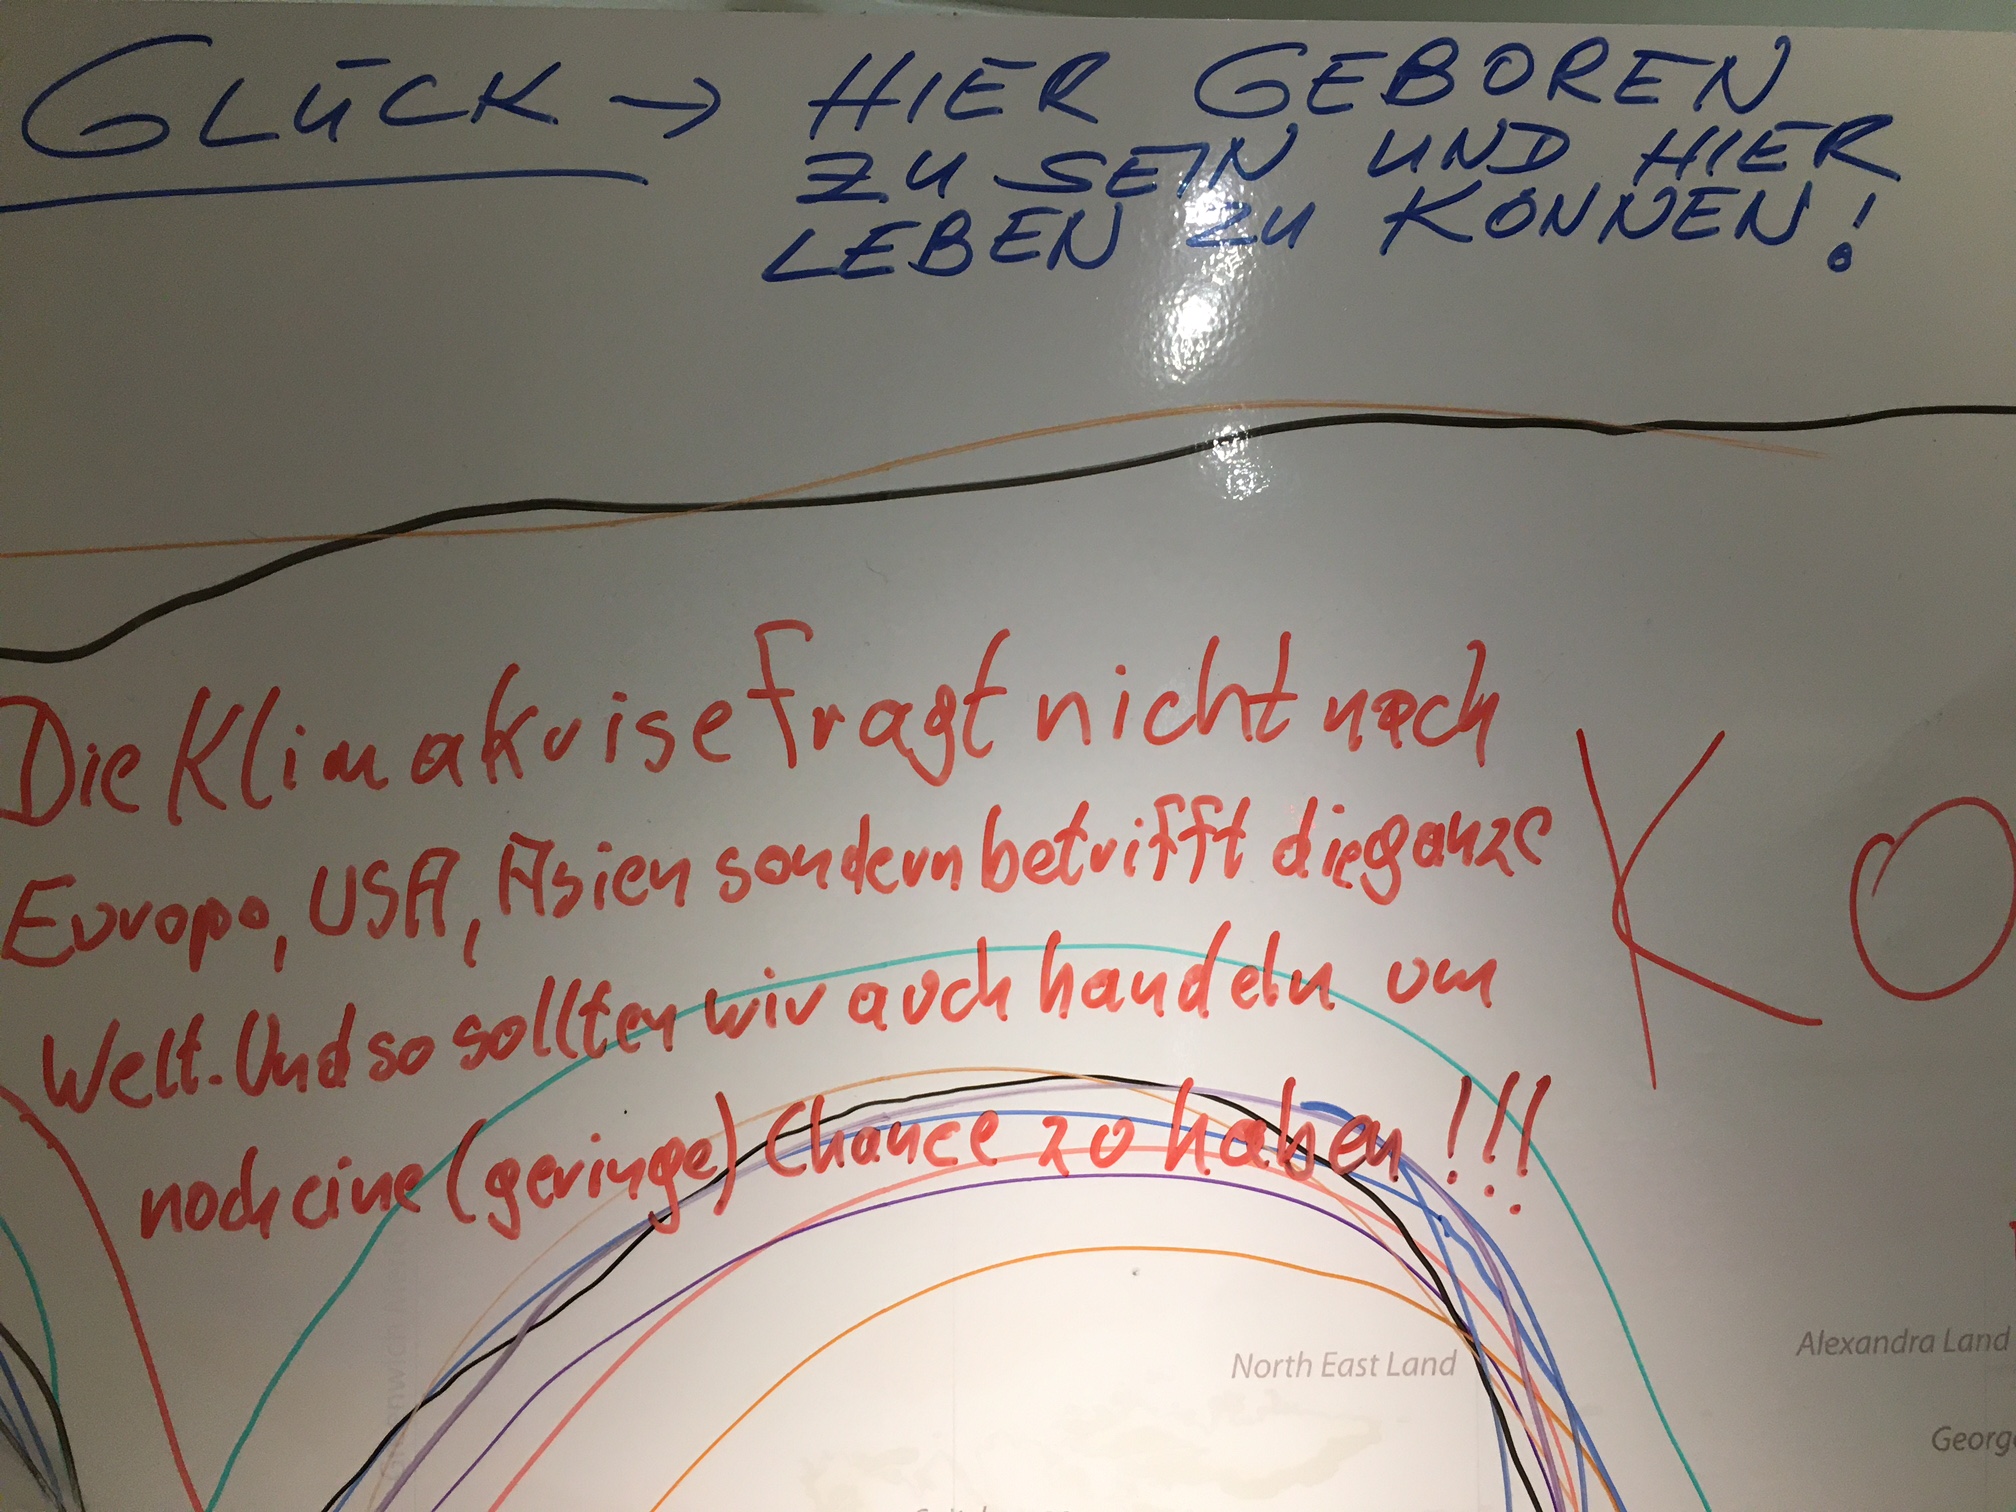 GLÜCK → HIER GEBOREN
ZU SEIN UND HIER
LEBEN ZU KÖNNEN!
Die Klimakrise fragt nicht nach
Europa, USA, Asien sondern betrifft die ganze
Welt. Und so sollten wir auch handeln um
noch eine (geringe) Chance zu haben!!!
KO
North East Land
Alexandra Land
Georg